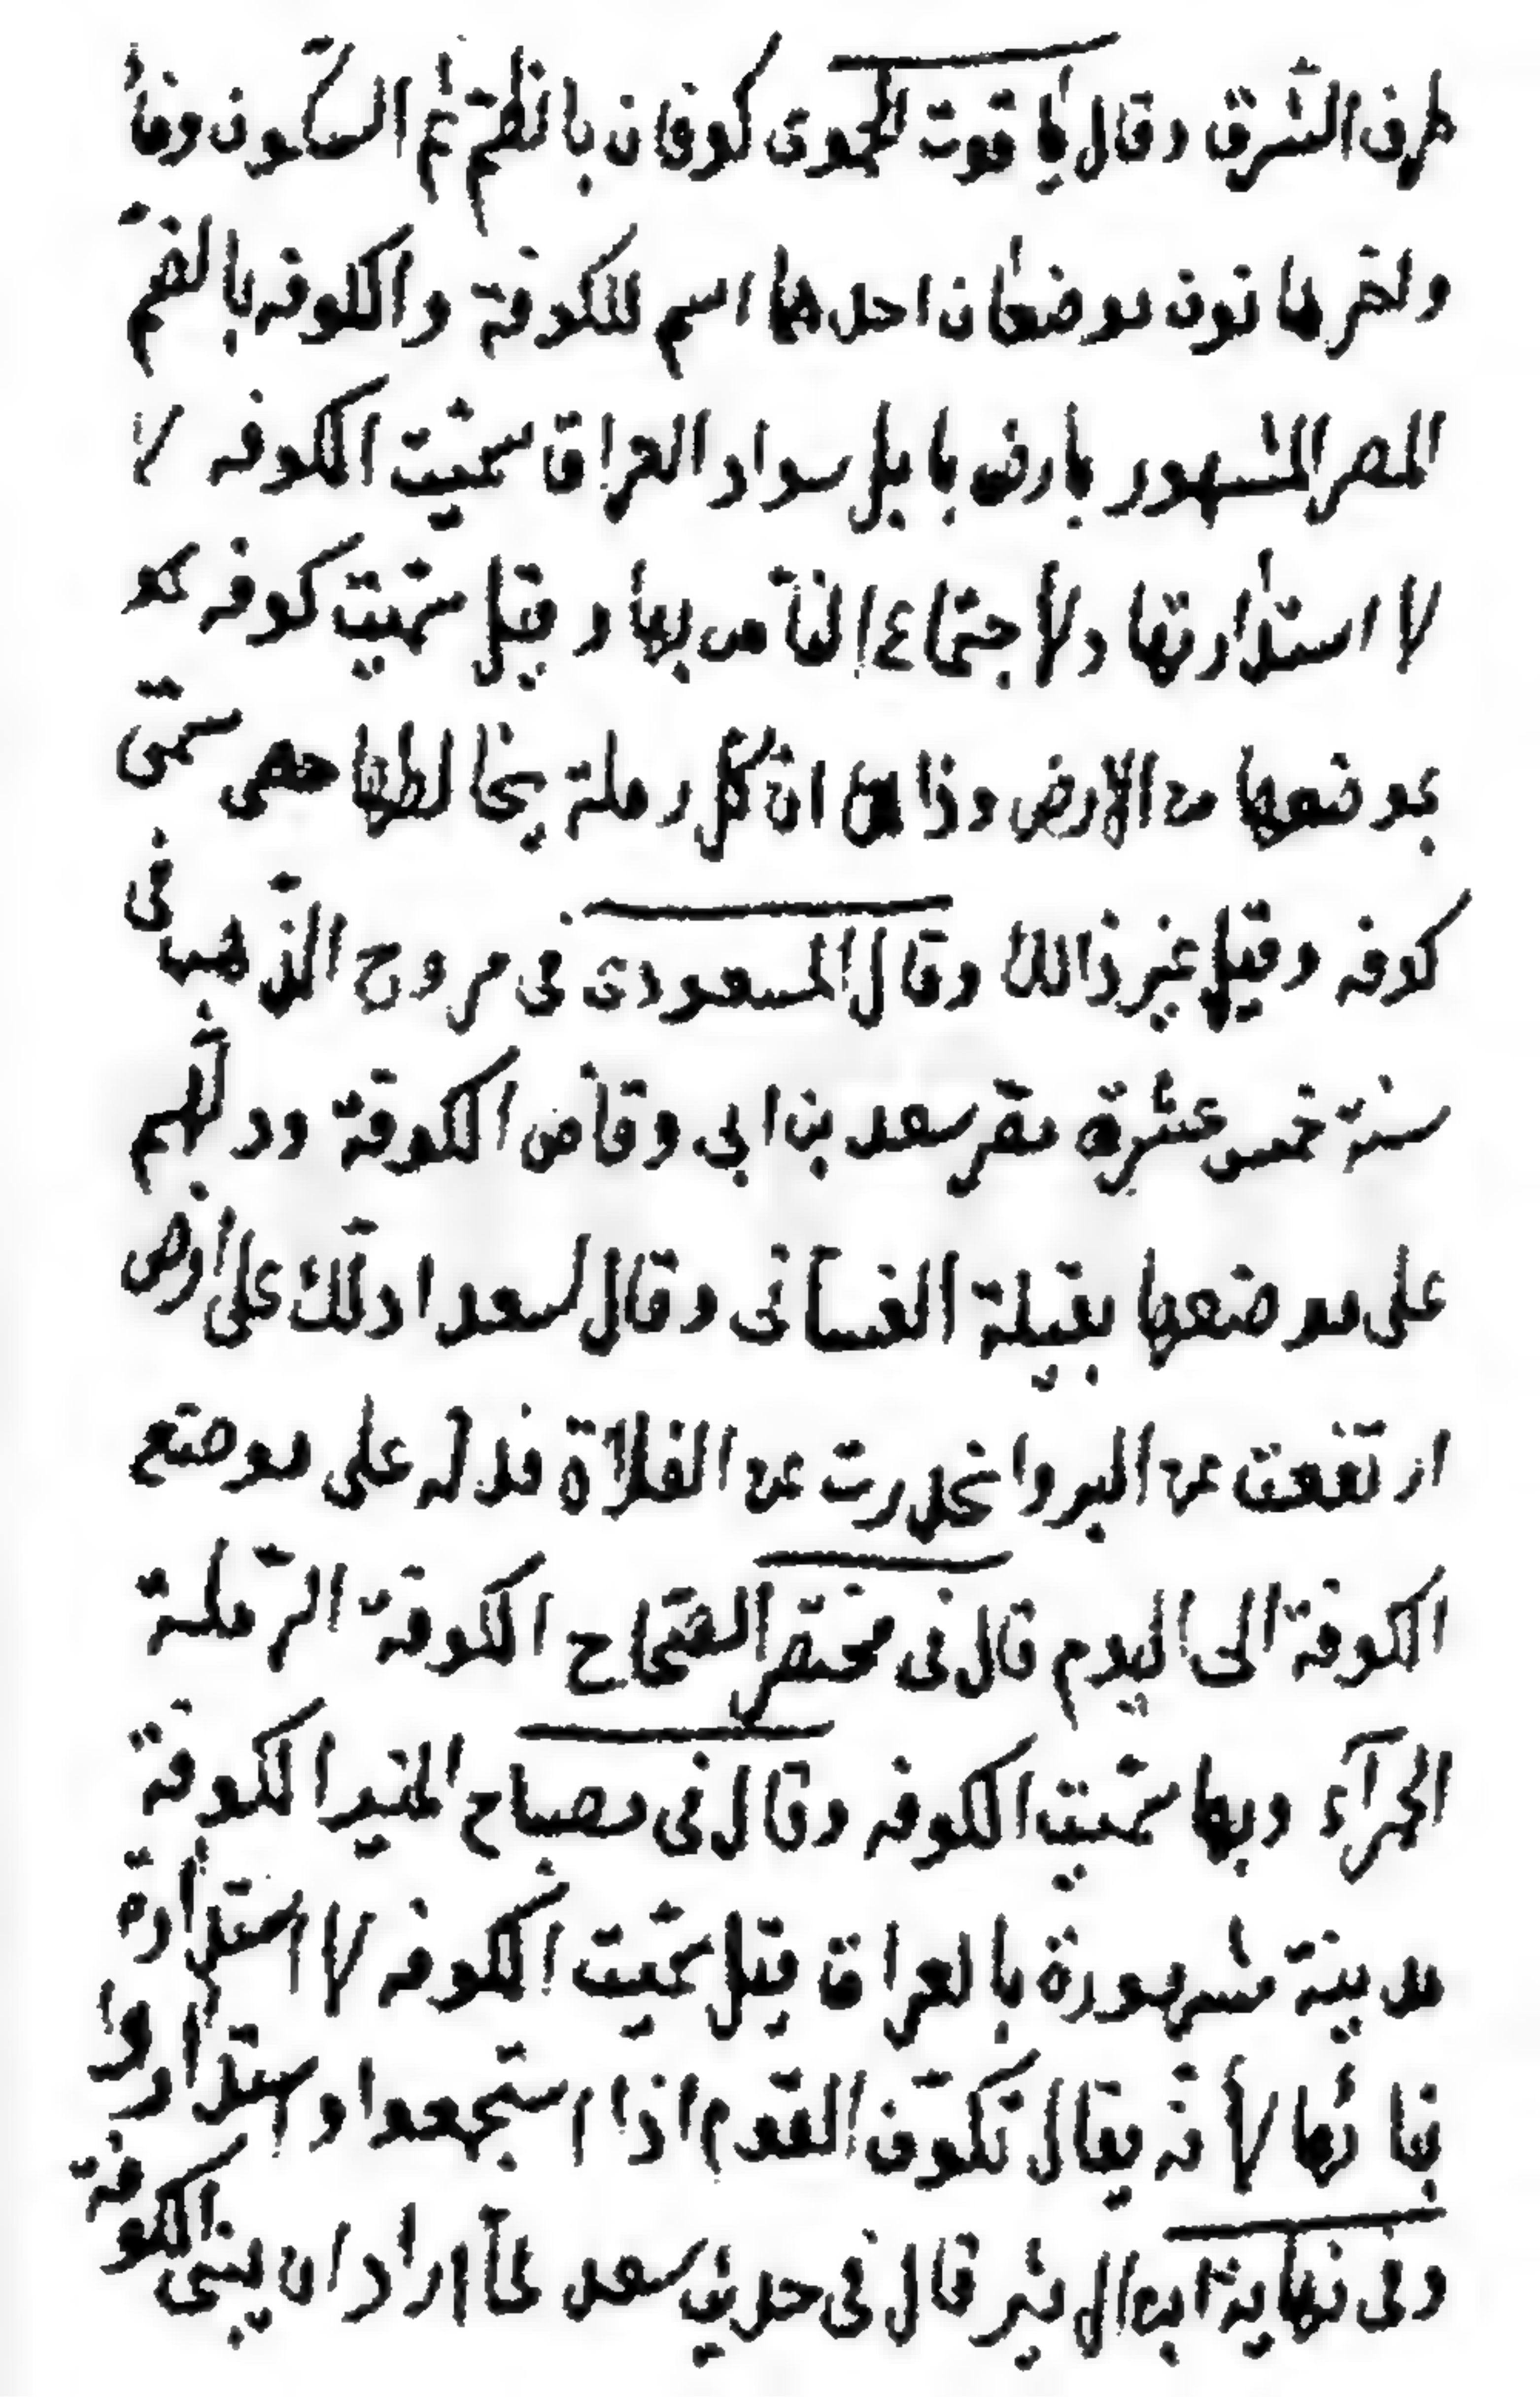 طرف الشرق وقال ياقوت الحموى كوفان بالظم ثم السكون وفاء
واخرها نون موضعان احدهما اسم للكوفة والكوفه بالضم
المصر المشهور بارض بابل سواد العراق سميت الكوفه لا
لا استدارتها ولاجتماع الناس بها وقيل سميت كوفه
بموضعها من الارض وذالك ان كل رملة يخالطها حصى سمى
كوفه وقيل غير ذالك وقال المسعودى فى مروج الذهب فى
سنة خمس عشرة مصر سعد بن ابى وقاص الكوفة ودلهم
على موضعها بقيلة الغسانى وقال لسعد ادلك على ارض
ارتفعت عن البر وانحدرت عن الفلاة فدله على موضع
الكوفة الى اليوم قال فى مختصر الصحاح الكوفة الرملة
الحمرآء وبها سميت الكوفه وقال فى مصباح المنير الكوفة
مدينة مشهورة بالعراق قيل سميت الكوفه لا استدارة
بنائها لأنه يقال تكوف القوم اذا استجمعوا واستداروا
وفى نهاية ابن الاثير قال فى حديث سعد لما اراد ان يبنى الكوفة